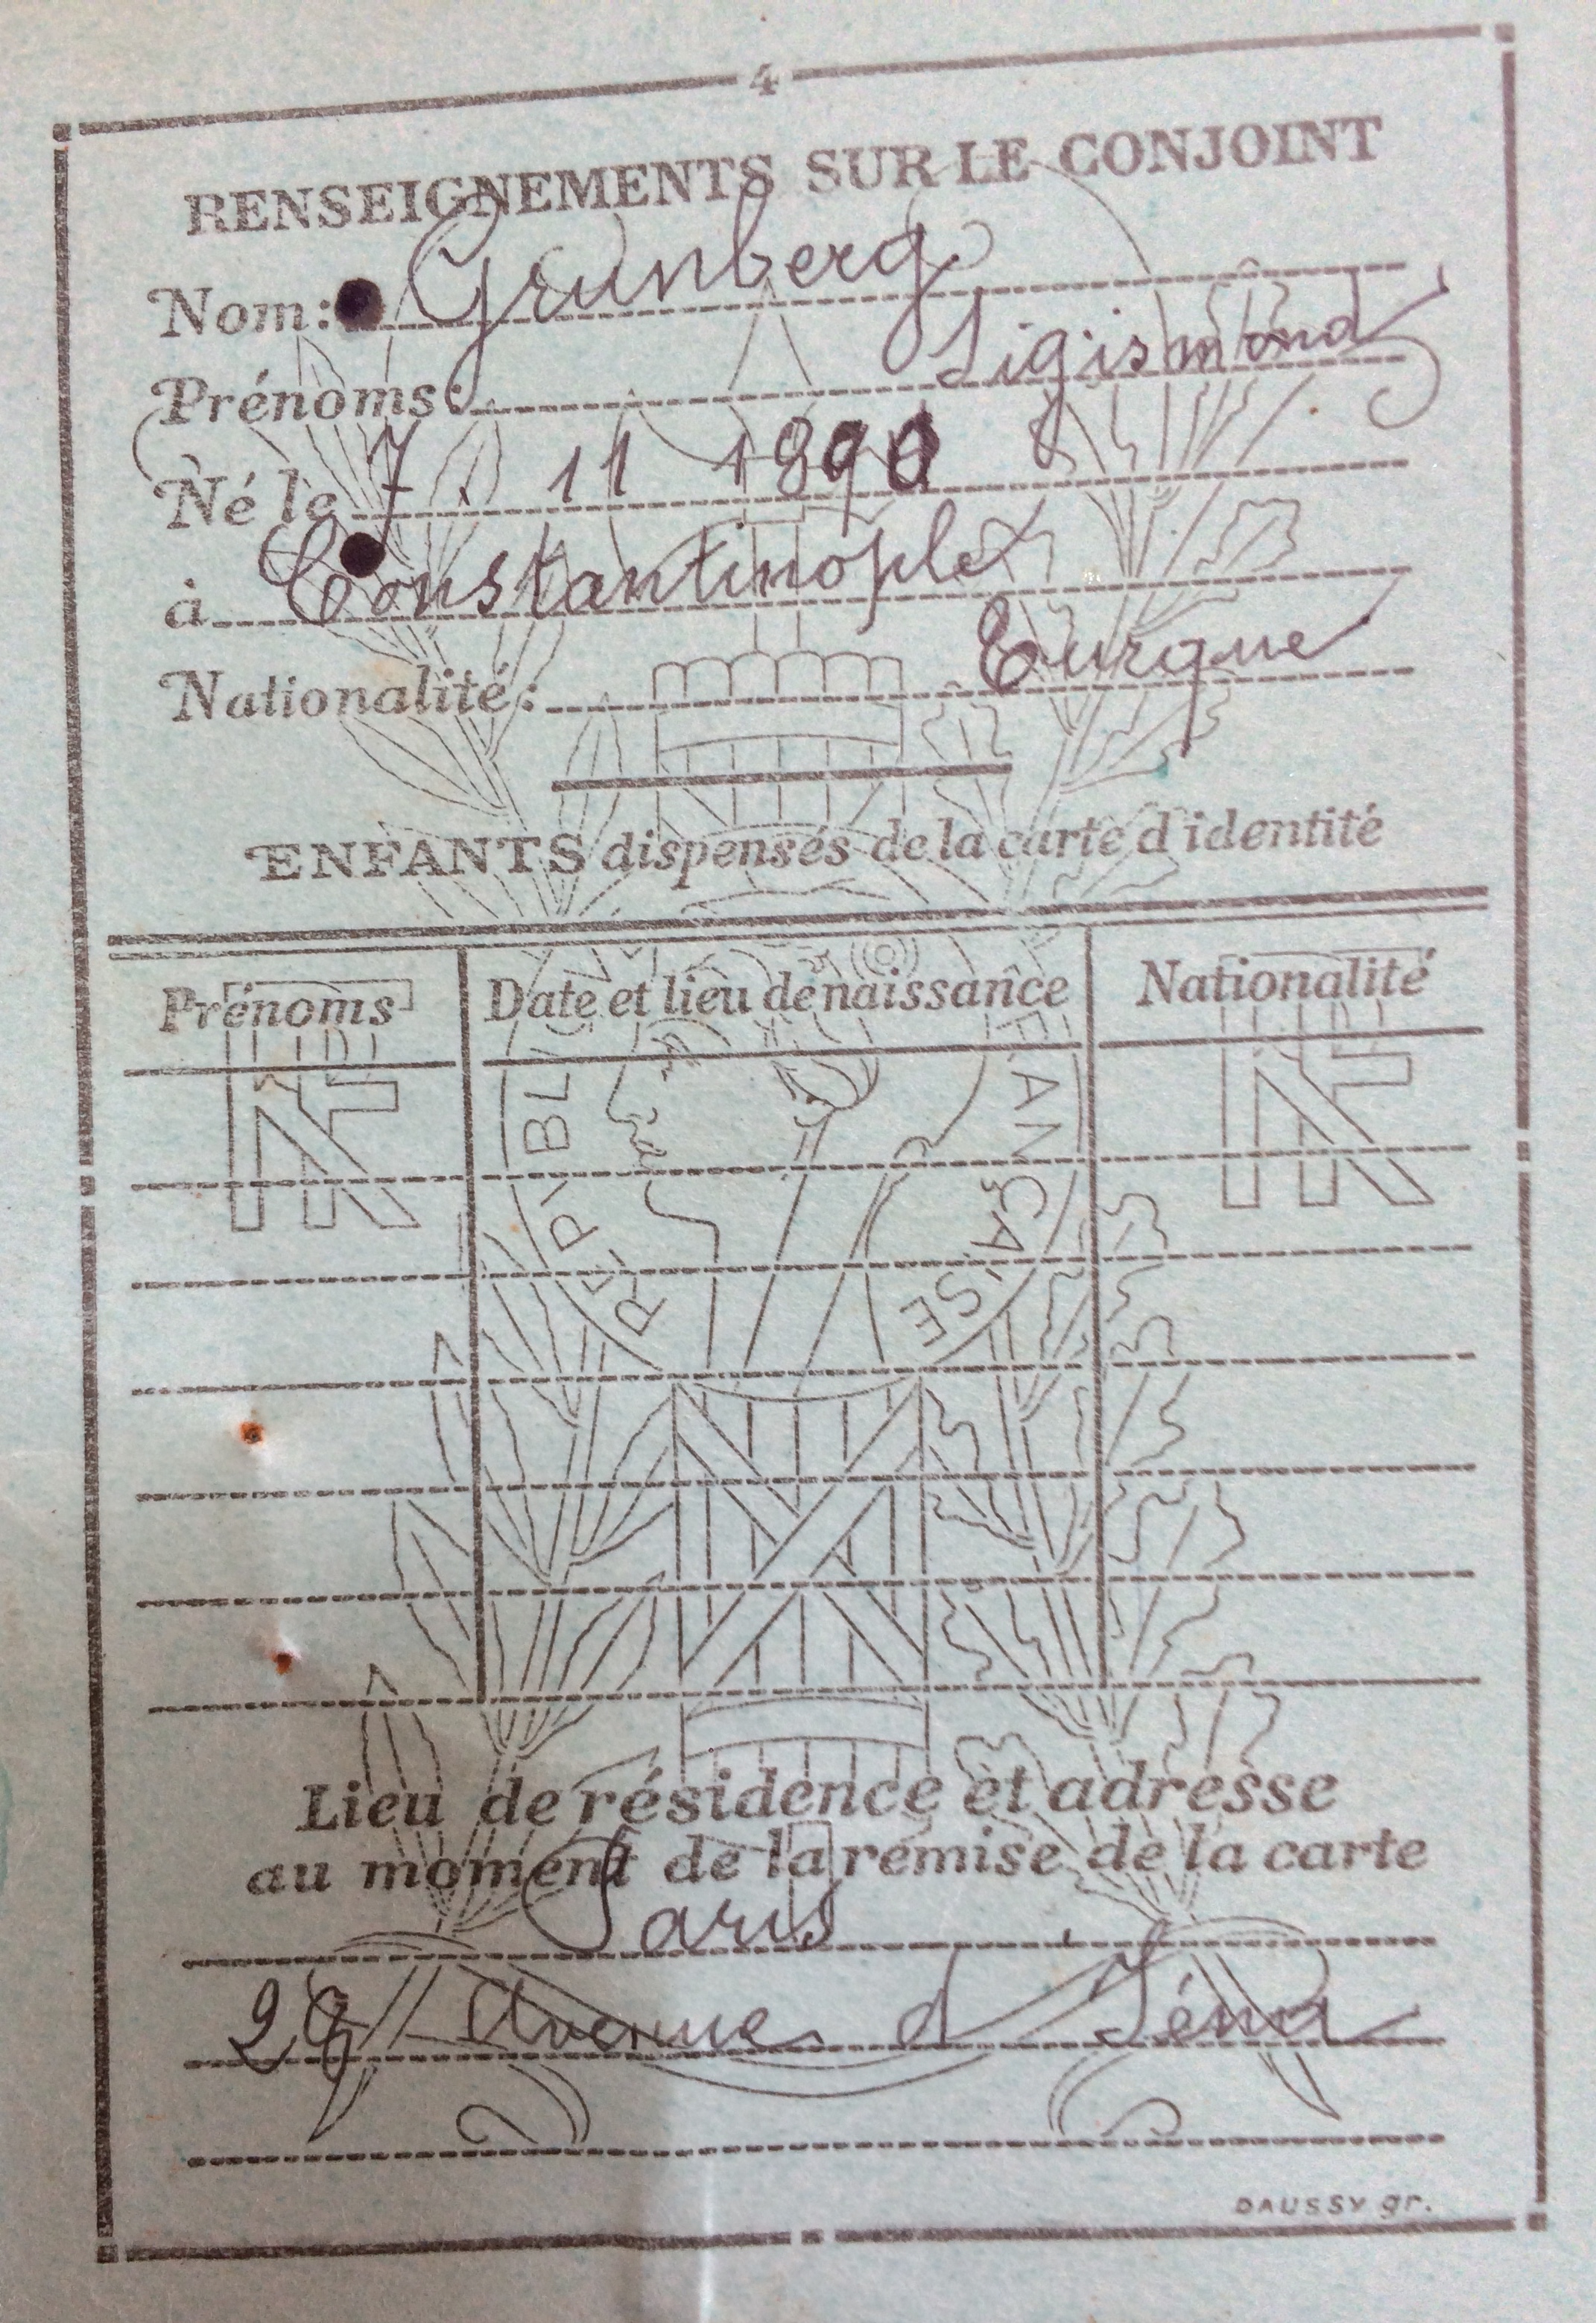 4
RENSEIGNEMENTS SUR LE CONJOINT
Nom: Grunberg
Prénoms: Sigismond
Né le 7. 11 1890
à Constantinople
Nationalité: Turque
ENFANTS dispensés de la carte d'identité
Prénoms Date et lieu de naissance Nationalité
RF RÉPUBLIQUE FRANÇAISE RF
Lieu de résidence et adresse
au moment de la remise de la carte
Paris
28 Avenue d'Iéna
DAUSSY gr.